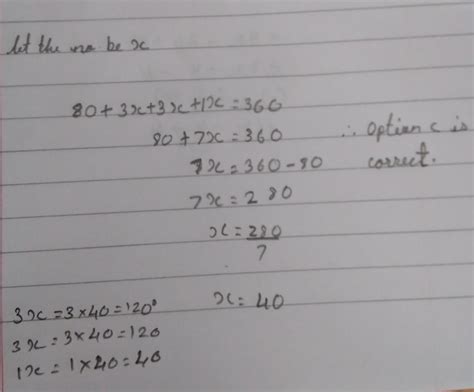 let the no be x
80+3x+3x+1x=360
80+7x=360
7x=360-80
7x=280
x=280/7
x=40
∴ Option c is
correct.
3x=3×40=120°
3x=3×40=120
1x=1×40=40